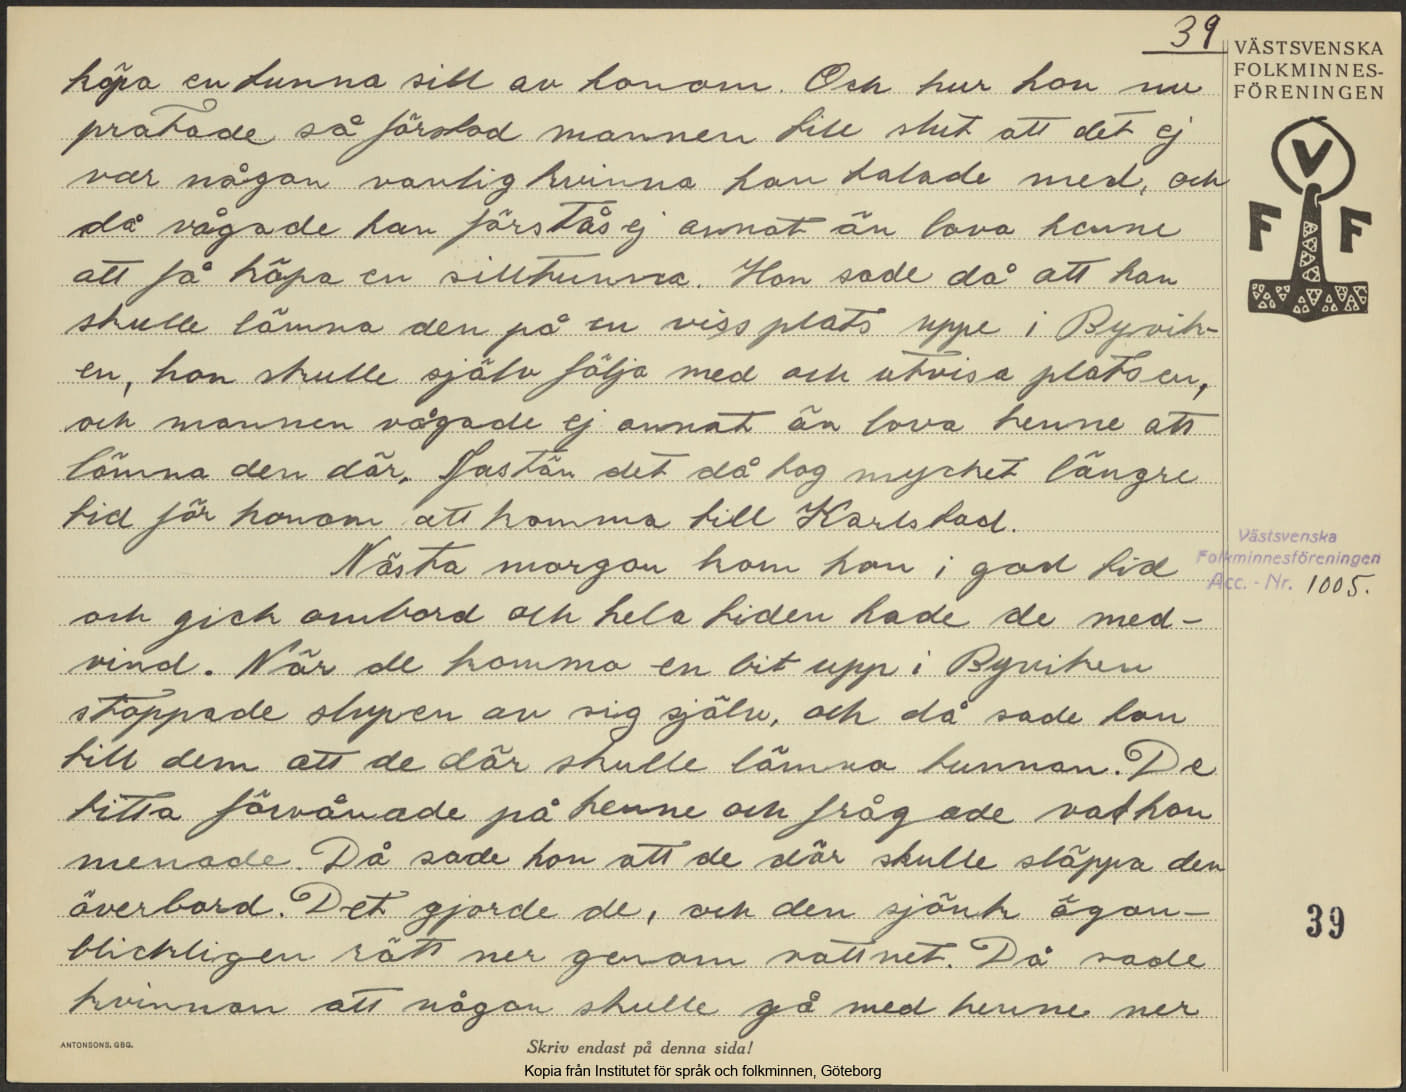 39
VÄSTSVENSKA
FOLKMINNES-
FÖRENINGEN
V
F F
köpa en tunna sill av honom. Och hur hon nu
pratade så förstod mannen till slut att det ej
var någon vanlig kvinna han talade med, och
då vågade han förstås ej annat än lova henne
att få köpa en silltunna. Hon sade då att han
skulle lämna den på en viss plats uppe i Byvik-
en, hon skulle själv följa med och utvisa platsen,
och mannen vågade ej annat än lova henne att
lämna den där. Fastän det då tog mycket längre
tid för honom att komma till Karlstad.
Nästa morgon kom hon i god tid
och gick ombord och hela tiden hade de med-
vind. När de komma en bit upp i Byviken
stoppade slupen av sig själv, och då sade hon
till dem att de där skulle lämna tunnan. De
titta förvånade på henne och frågade vad hon
menade. Då sade hon att de där skulle släppa den
överbord. Det gjorde de, och den sjönk ögon-
blickligen rätt ner genom vattnet. Då sade
kvinnan att någon skulle gå med henne ner
Västsvenska
Folkminnesföreningen
Acc. - Nr. 1005.
39
ANTONSONS. GBG.
Skriv endast på denna sida!
Kopia från Institutet för språk och folkminnen, Göteborg